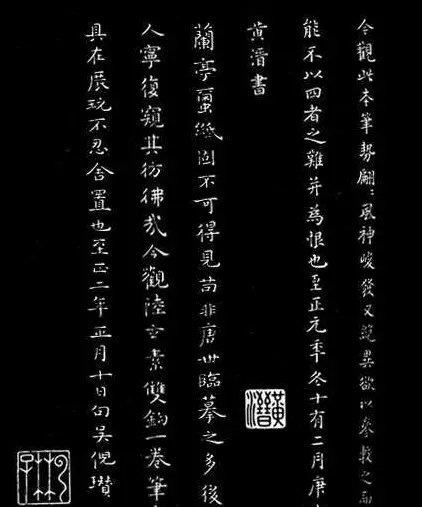 今觀此本筆勢翩〻風神峻發又絕異欲以參較之而
能不以四者之難并為恨也至正元年冬十有二月庚
黃溍書
蘭亭蠒紙固不可得見苟非唐世臨摹之多後
人寧復窺其彷彿哉今觀陸玄素雙鈎一卷筆
具在展玩不忍舍置也至正二年正月十日句吳倪瓚
黃溍